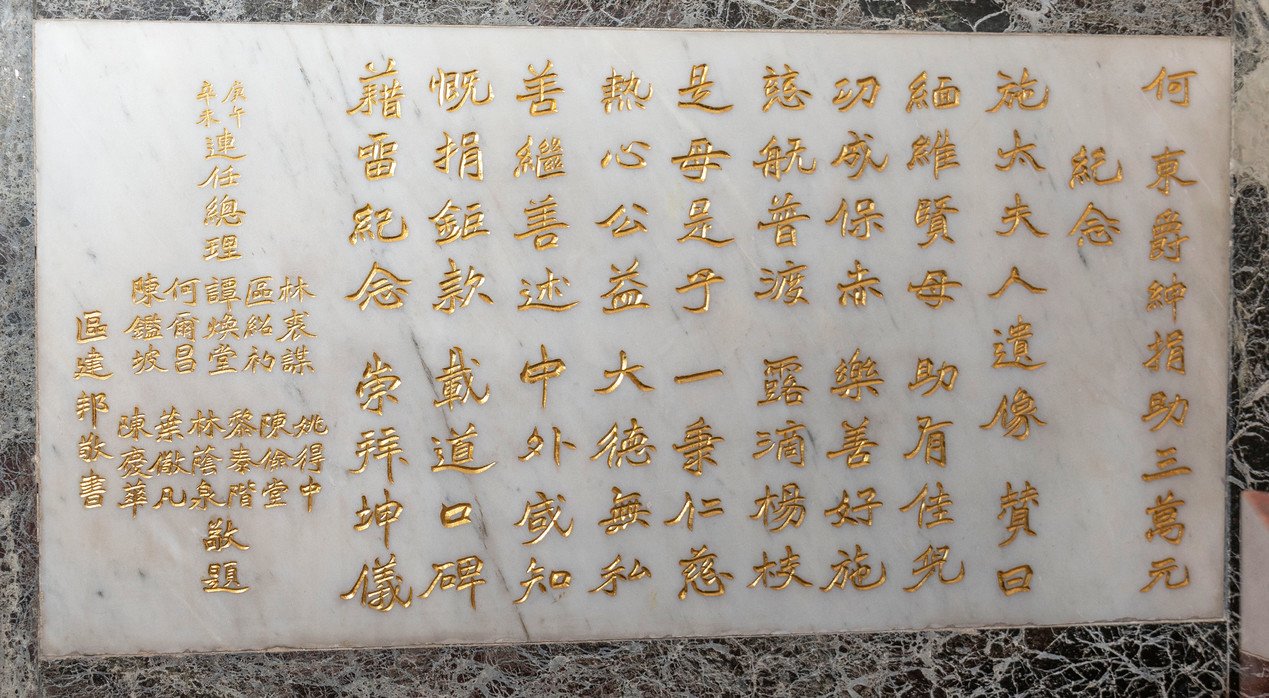 何東爵紳捐助三萬元
紀念
施太夫人遺像 贊曰
緬維賢母 助有佳兒
功成保赤 樂善好施
慈航普渡 露滴楊枝
是母是子 一秉仁慈
熱心公益 大德無私
善繼善述 中外咸知
慨捐鉅款 載道口碑
藉留紀念 崇拜坤儀
庚午
辛未
連任總理
林裘謀
區紹初
譚煥堂
何爾昌
陳鑑坡
姚得中
黎泰階
林蔭泉
敬題
區建邦敬書